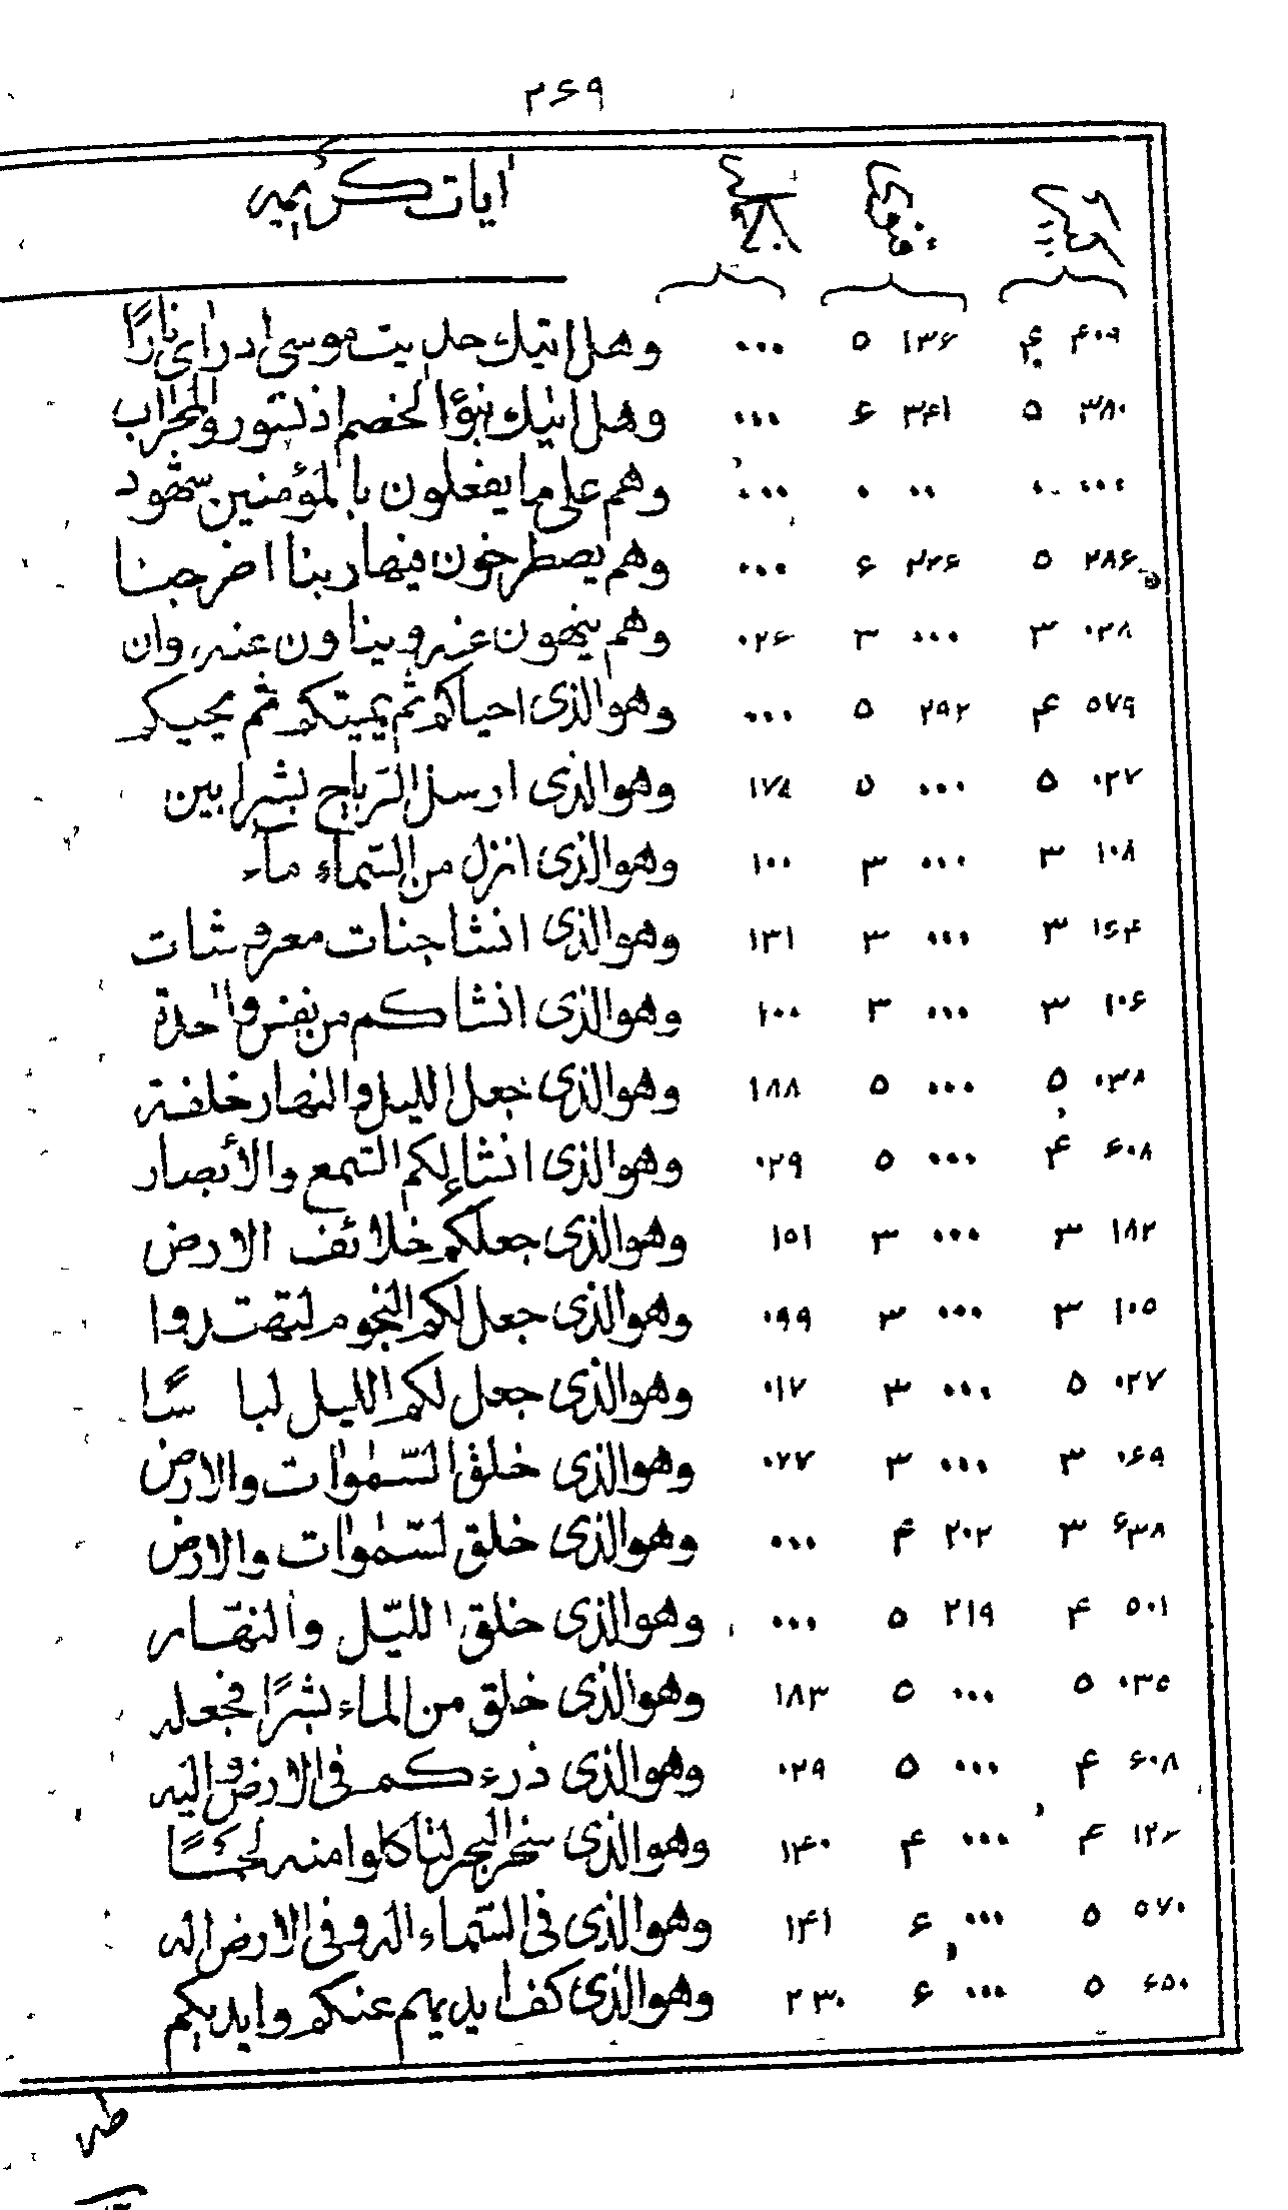 ۲۶۹
ايات كريميه
۴۰۹ ۴ ۱۳۶ ۵ ۰۰۰ وهل اتيك حديث موسى اذ راى نارًا
۳۸۰ ۵ ۳۴۱ ۶ ۰۰۰ وهل اتيك نبؤا الخصم اذ تسوروالمحراب
۰۰۰ ۰ ۰۰ ۰ ۰۰۰ وهم على ما يفعلون بالمؤمنين شهود
۲۸۶ ۵ ۲۲۶ ۶ ۰۰۰ وهم يصطرخون فيها ربنا اخرجنا
۰۲۸ ۳ ۰۰۰ ۳ ۰۲۶ وهم ينهون عنه وينأون عنه، وان
۵۷۹ ۴ ۲۹۲ ۵ ۰۰۰ وهوالذى احياكم ثم يميتكم ثم يحييكم
۰۲۷ ۵ ۰۰۰ ۵ ۱۷۸ وهوالذى ارسل الرياح بشرا بين
۱۰۸ ۳ ۰۰۰ ۳ ۱۰۰ وهوالذى انزل من السّماءِ ماء
۱۶۴ ۳ ۰۰۰ ۳ ۱۳۱ وهوالذى انشا جنات معروشات
۱۰۶ ۳ ۰۰۰ ۳ ۱۰۰ وهوالذى انشا كم من نفس واحدة
۰۳۸ ۵ ۰۰۰ ۵ ۱۸۸ وهوالذى جعل الليل والنهار خلفة
۶۰۸ ۴ ۰۰۰ ۵ ۰۲۹ وهوالذى انشاءلكم السّمع والأبصار
۱۸۲ ۳ ۰۰۰ ۳ ۱۵۱ وهوالذى جعلكم خلائف الارض
۱۰۵ ۳ ۰۰۰ ۳ ۰۹۹ وهوالذى جعل لكم النجوم لتهتدوا
۰۲۷ ۵ ۰۰۰ ۳ ۰۱۷ وهوالذى جعل لكم الليل لبا سًا
۰۶۹ ۳ ۰۰۰ ۳ ۰۷۷ وهوالذى خلق السّمٰوات والارض
۶۳۸ ۳ ۲۰۲ ۴ ۰۰۰ وهوالذى خلق لسّمٰوات والارض
۵۰۱ ۴ ۲۱۹ ۵ ۰۰۰ وهوالذى خلق الليّل والنهّار
۰۳۵ ۵ ۰۰۰ ۵ ۱۸۳ وهوالذى خلق من الماء بشرًا فجعله
۶۰۸ ۴ ۰۰۰ ۵ ۰۲۹ وهوالذى ذرء كم فى الارض واليه
۱۲۶ ۴ ۰۰۰ ۴ ۱۴۰ وهوالذى سخر البحر لتاكلوا منه لحمًا
۵۷۰ ۵ ۰۰۰ ۶ ۱۴۱ وهوالذى فى السّماء اله وفى الارض اله
۶۵۰ ۵ ۰۰۰ ۶ ۲۳۰ وهوالذى كف ايديهم عنكم وايديكم